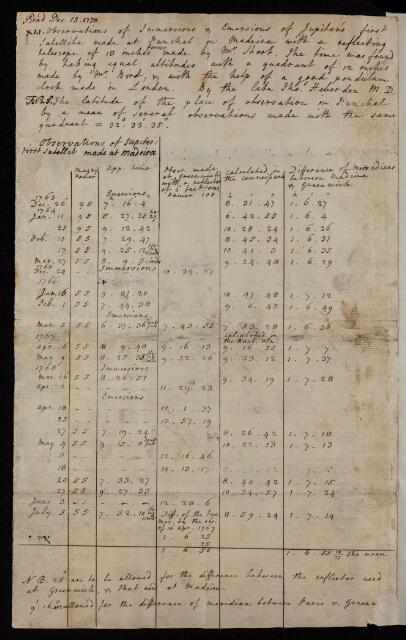 Read Dec 13. 1770
XLII. Observations of Immersions & Emersions of Jupiter's first
Satellite made at Funchal in Madeira with a reflecting
telescope of 18 inches focus made by Mr. Short. The time was found
by taking equal altitudes with a quadrant of 12 inches
made by Mr. Bird, & with the help of a good pendulum
clock made in London. By the late Thos Heberden M. D.
F.R.S. The latitude of the place of observation in Funchal
by a mean of several observations made with the same
quadrant = 32°. 33'. 35".
Observations of Jupiter's
first satellit made at Madeira
app. time
Observ. made at Greenwich with a reflector of 6 feet
calculated in the
Difference of meridians between Madeira & Greenwich
1763 Emersions
Dec. 26 95 7. 16. 4 8. 31. 47 1. 6. 27
1764
Jan. 11 95 5. 27. 35 6. 42. 55 1. 6. 4
25 95 9. 12. 42 10. 28. 24 1. 6. 26
Feb. 10 55 7. 29. 47 8. 45. 34 1. 6. 31
17 55 9. 25. 12 10. 41. 3 1. 6. 35
Mar. 27 55 8. 9. 9. 24. 48 1. 6. 29
Dec. 24 Immersions 10. 39. 27
Jan 16 55 9. 31. 20 10. 47. 48 1. 7. 12
Feb. 1 55 7. 44. 38 9. 6. 43 1. 6. 49
Emersions
Mar. 5 55 6. 37. 36 7. 43. 55 7. 53. 28 1. 6. 36
1767 calculated in the Naut. Alm.
Apr. 16 55 8. 9. 48 9. 16. 13 9. 16. 55 1. 7. 7
May 9 55 8. 25. 35 9. 32. 26 9. 33. 12 1. 7. 37
1768 Immersions
Mar. 26 55 8. 26. 51 9. 34. 19 1. 7. 28
Apr. 2 - - - - 11. 29. 23
Emersions
Apr. 18 - - - - 12. 1. 37
25 10. 57. 19
27 55 7. 19. 24 8. 26. 42 1. 7. 18
May 4 55 9. 15. 0 10. 22. 13 1. 7. 13
11 - - - - 12. 16. 46
18 - - - - 14. 13. 17
20 55 7. 33. 27 8. 40. 42 1. 7. 15
27 55 9. 27. 33 10. 34. 57 1. 7. 24
June 3 - - - - 12. 28. 6
July 5 55 7. 52. 10 Diff. of the two mer. by the obs. of 16 apr. 1767 8. 59. 24 1. 7. 14
1. 6. 25
25
1. 6. 50 1. 6. 55 the mean
N.B. 25" are to be allowed for the difference between the reflector used
at Greenwich, & that used at Madeira
allowed for the difference of meridian between Paris & Green